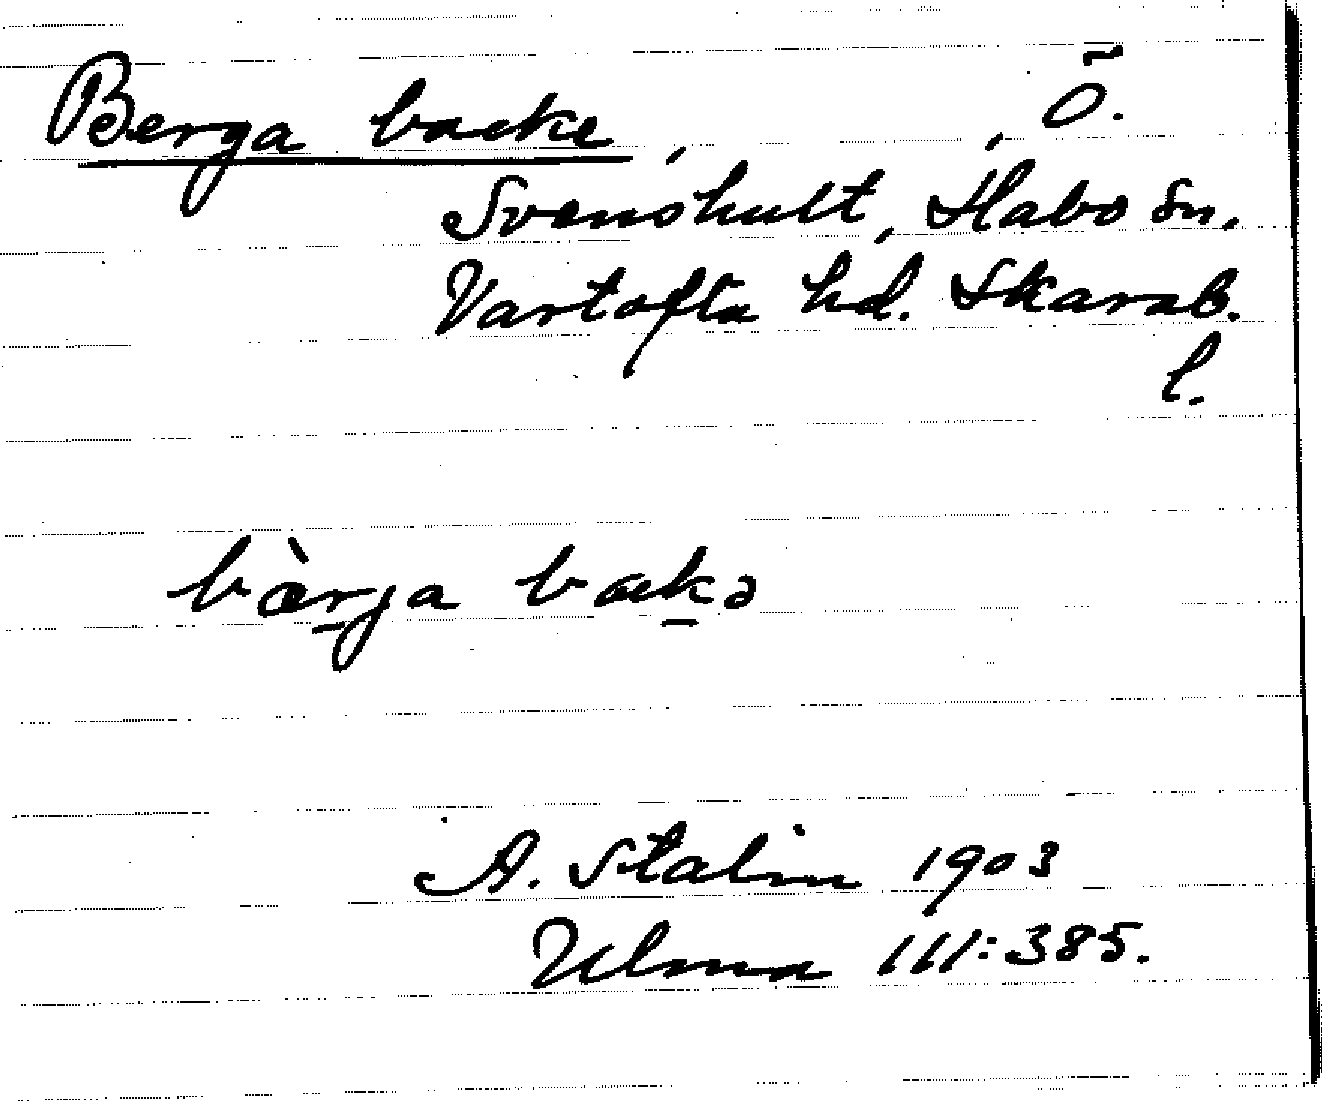 Berga backe, , Ö.
Svenshult, Habo sn.
Vartofta hd. Skarab.
l.
bàrja backə
A. Stalin 1903
Ulma 111:385.